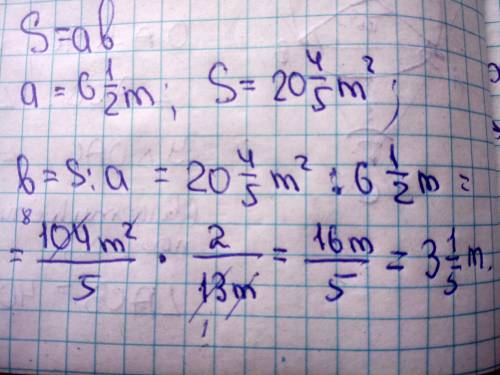 S=ab
a = 6 1/2 m; S = 20 4/5 m²;
b = S:a = 20 4/5 m² : 6 1/2 m =
= 104m²/5 · 2/13m = 16m/5 = 3 1/5 m.
8
1